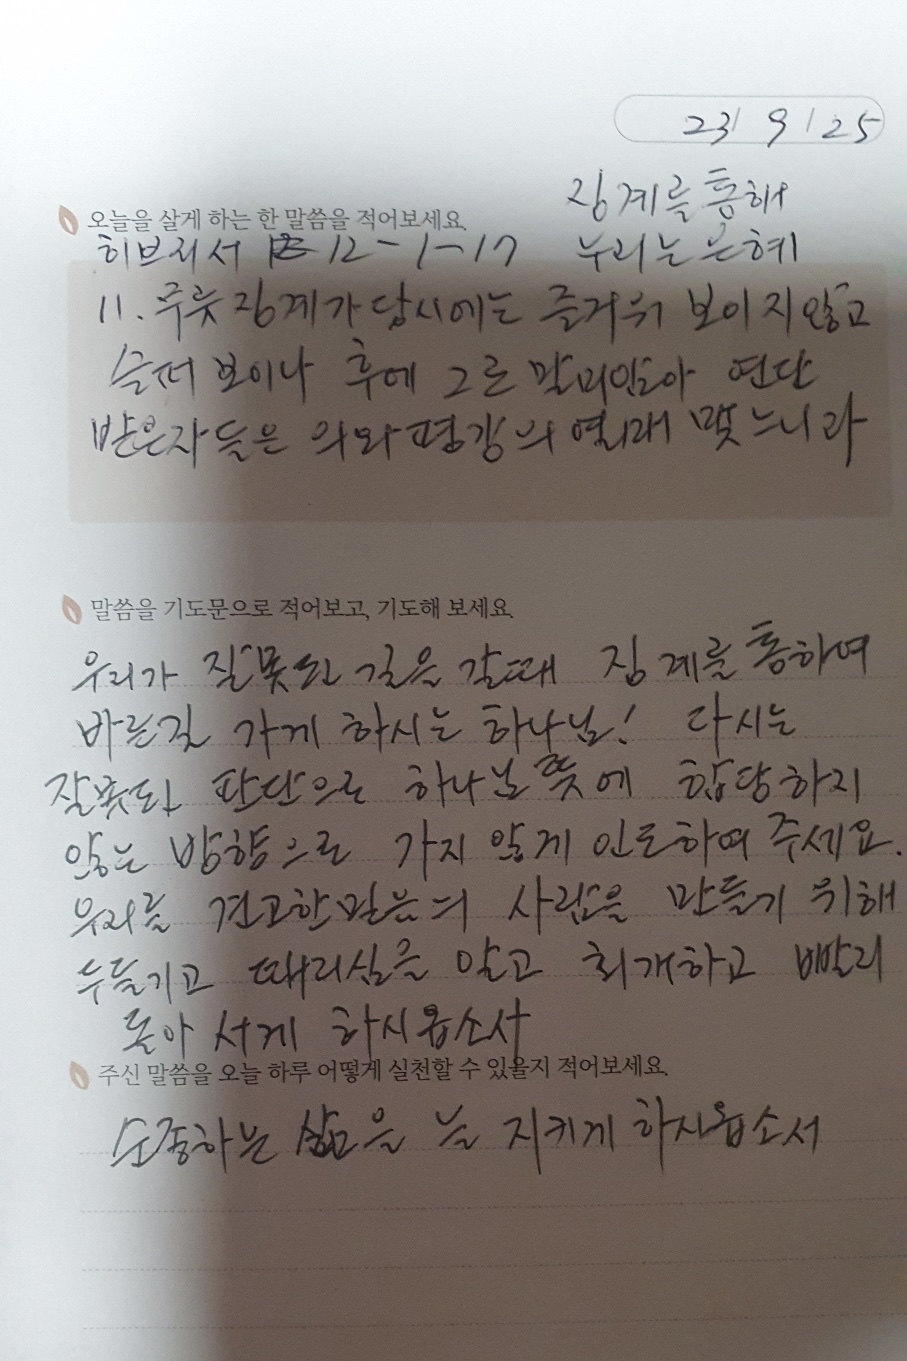 23/ 9 / 25
징계를 통해
오늘을 살게 하는 한 말씀을 적어보세요.
히브리서 12-1-17 누리는 은혜
11. 무릇 징계가 당시에는 즐거워 보이지 않고
슬퍼 보이나 후에 그로 말미암아 연단
받은자들은 의와 평강의 열매 맺느니라
말씀을 기도문으로 적어보고, 기도해 보세요.
우리가 잘못된 길을 갈때 징계를 통하여
바른길 가게 하시는 하나님! 다시는
잘못된 판단으로 하나님 뜻에 합당하지
않는 방향으로 가지 않게 인도하여 주세요.
우리를 견고한 믿음의 사람을 만들기 위해
두들기고 때리심을 알고 회개하고 빨리
돌아 서게 하시옵소서
주신 말씀을 오늘 하루 어떻게 실천할 수 있을지 적어보세요.
순종하는 삶을 늘 지키게 하시옵소서